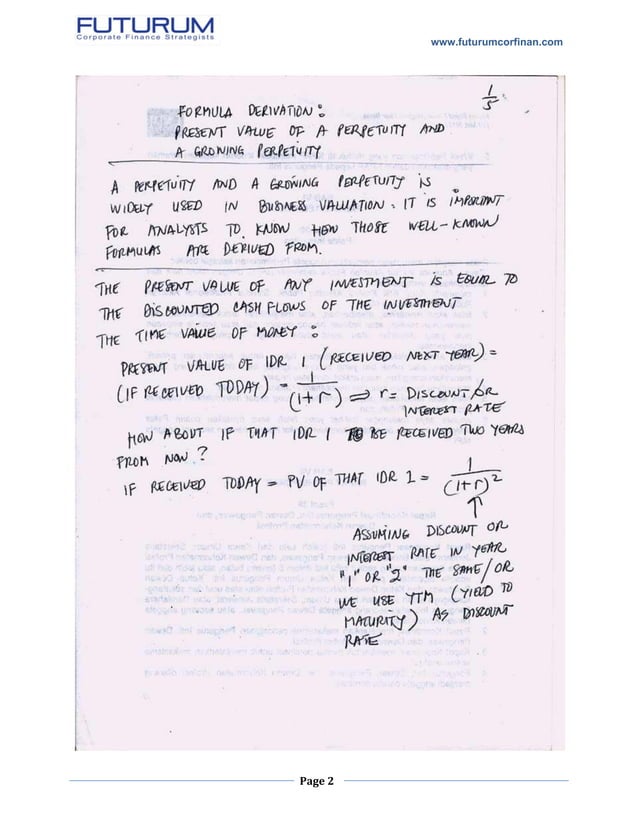 FUTURUM
Corporate Finance Strategists
www.futurumcorfinan.com
1/5
FORMULA DERIVATION :
PRESENT VALUE OF A PERPETUITY AND
A GROWING PERPETUITY
A PERPETUITY AND A GROWING PERPETUITY IS
WIDELY USED IN BUSINESS VALUATION. IT IS IMPORTANT
FOR ANALYSTS TO KNOW HOW THOSE WELL-KNOWN
FORMULAS ARE DERIVED FROM.
THE PRESENT VALUE OF ANY INVESTMENT IS EQUAL TO
THE DISCOUNTED CASH FLOWS OF THE INVESTMENT
THE TIME VALUE OF MONEY :
PRESENT VALUE OF IDR 1 (RECEIVED NEXT YEAR) =
(IF RECEIVED TODAY) = 1/(1+r) ⇒ r = DISCOUNT/OR
INTEREST RATE
HOW ABOUT IF THAT IDR 1 TO BE RECEIVED TWO YEARS
FROM NOW ?
IF RECEIVED TODAY = PV OF THAT IDR 1 = 1/(1+r)²
ASSUMING DISCOUNT OR
INTEREST RATE IN YEAR
"1" OR "2" THE SAME / OR
WE USE YTM (YIELD TO
MATURITY) AS DISCOUNT
RATE
Page 2